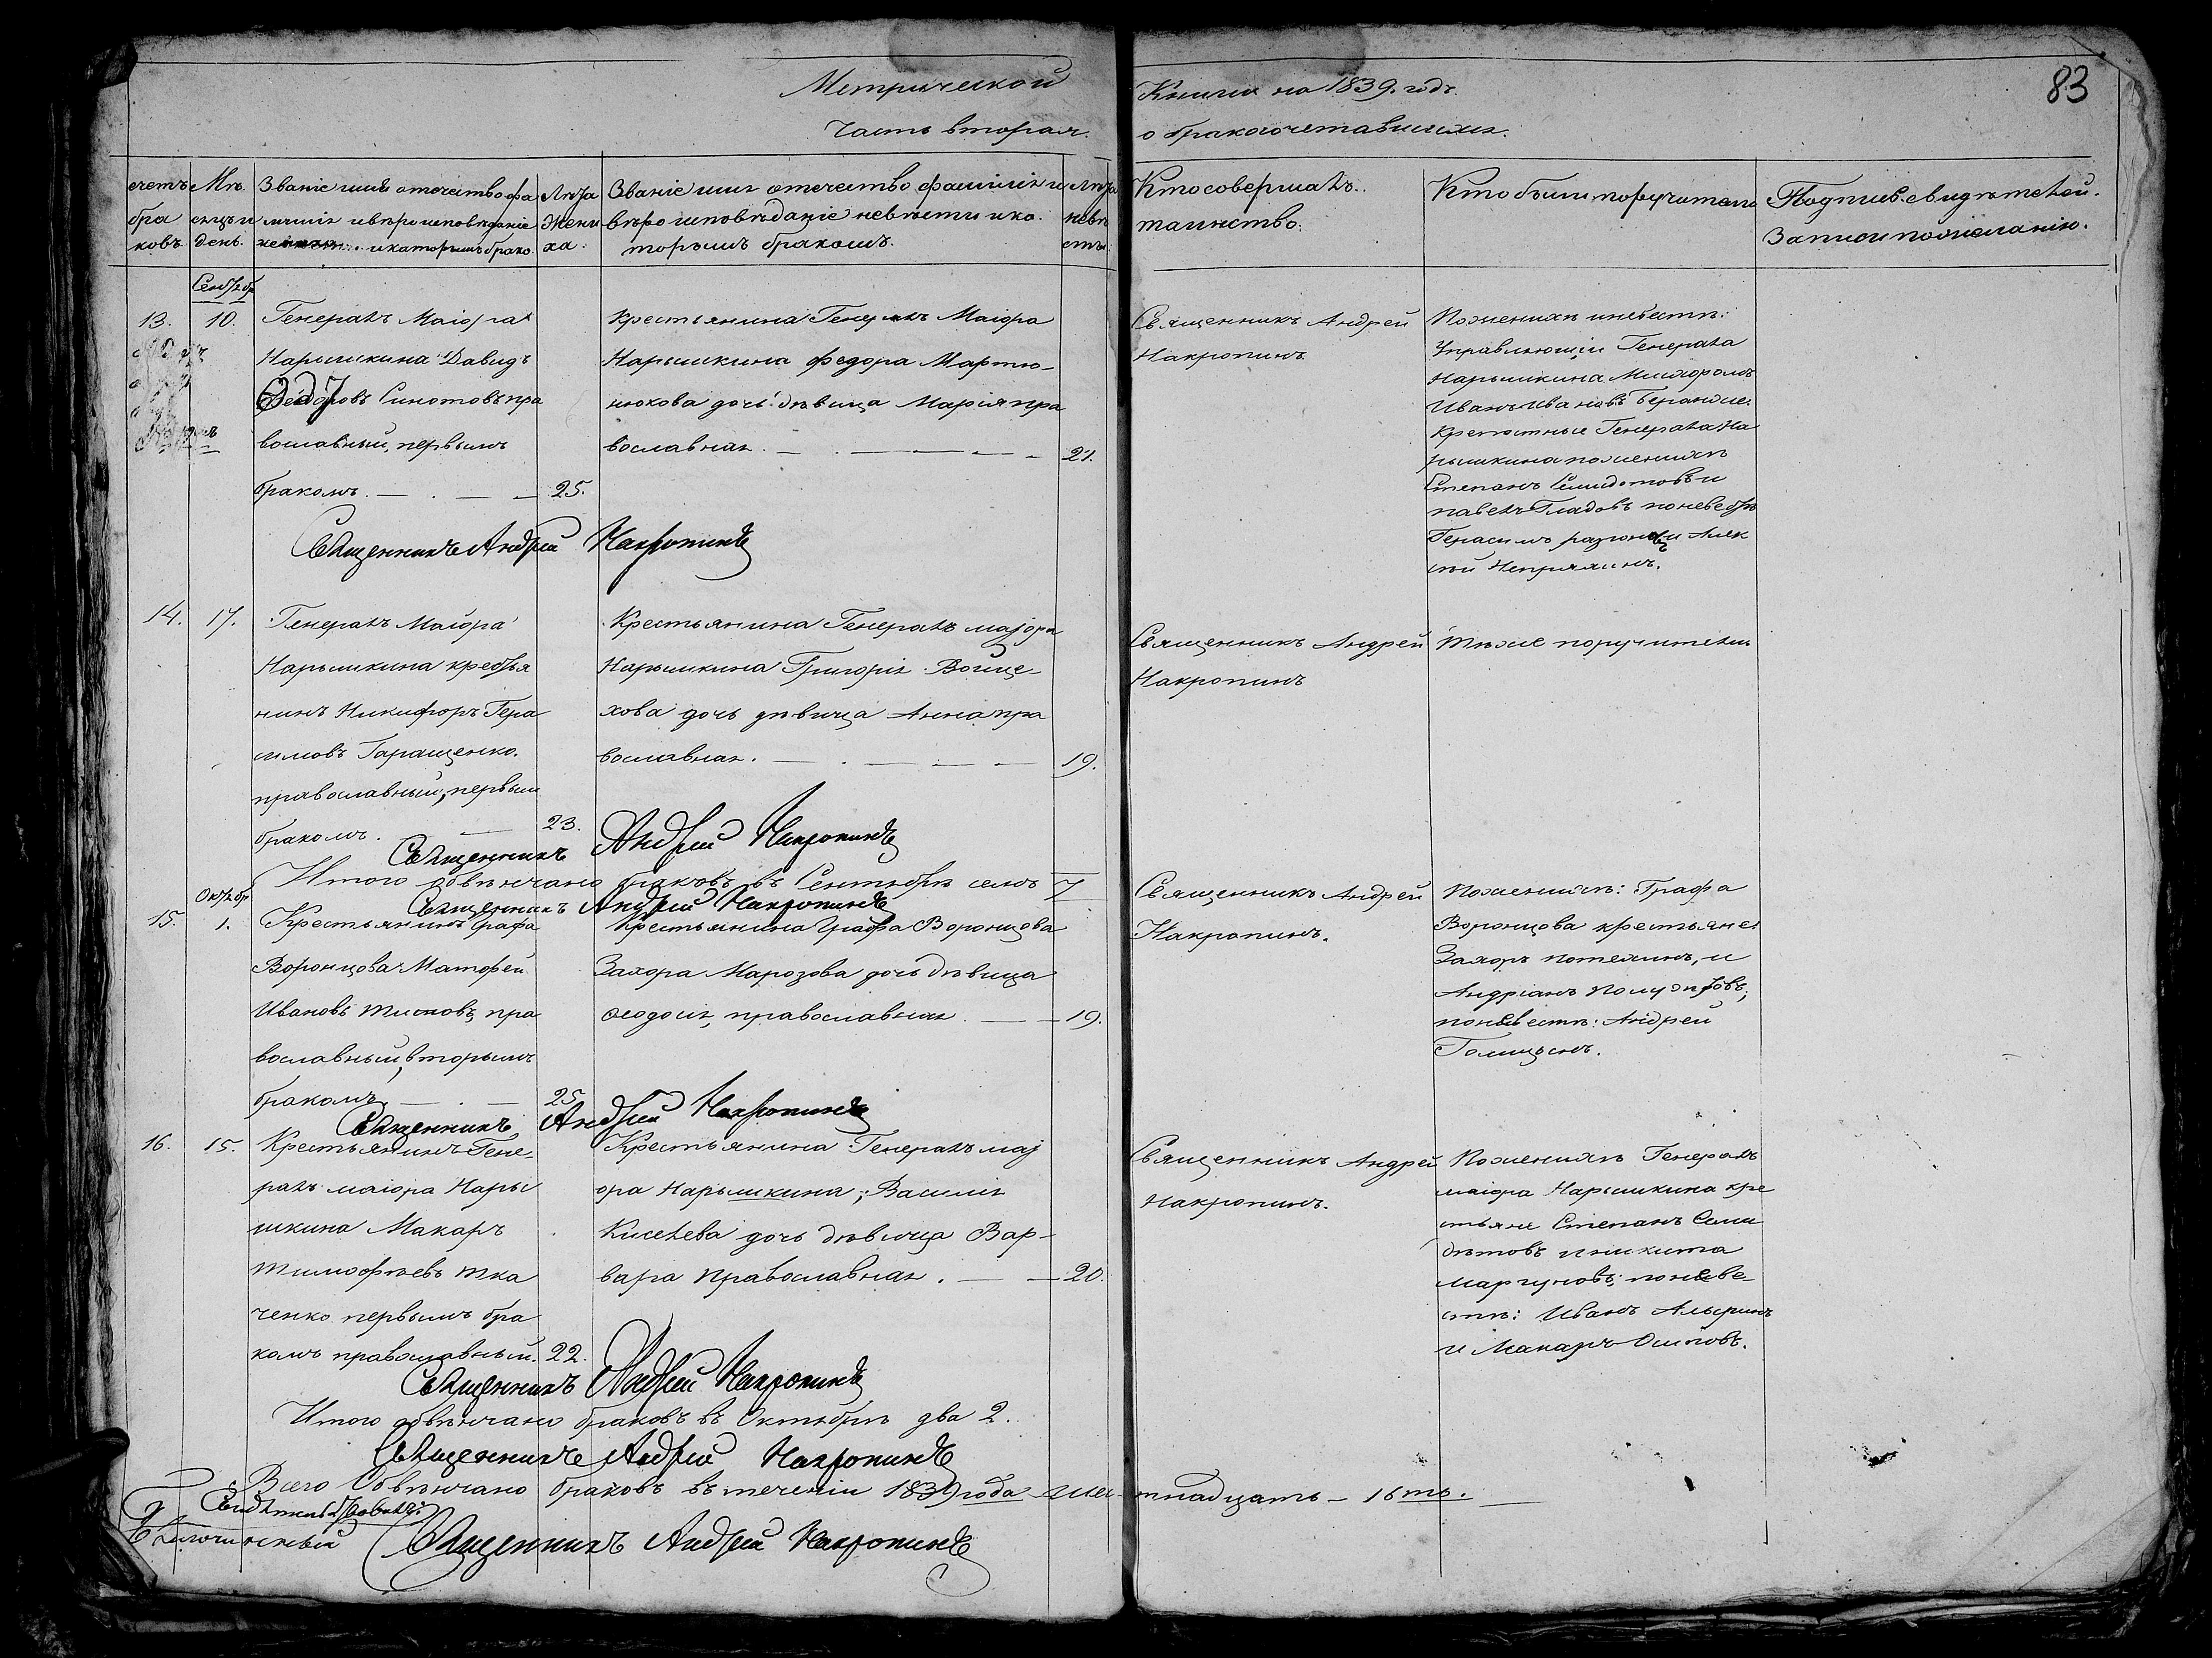 Метрической Книги на 1839. годъ.
83
Часть вторая. о бракосочетавшихся.
счетъ бра ковъ.
Мѣ сяцъ и день.
Званіе имя отечество фа
милія и вѣроисповѣданіе
и каторымъ брако.
Лѣта Жени ха.
Званіе имя отечество фамилія и
вѣроисповѣданіе невѣсти и ко.
торымъ бракомъ.
Лѣта невѣ сты.
Кто совершалъ.
таинство.
Кто были поручители
Подпись свидѣтелей.
Записи по желанію.
Сентябр
13. 10.
Генералъ Маіора
Нарышкина Давидъ
Феодоровъ Синотовъ пра
вославный, первымъ
бракомъ. — 25.
Крестьянина Генералъ Маіора
Нарышкина федора Мартю-
нюкова дочь: дѣвица Марія пра
вославная. — 21.
Священникъ Андрей
Накропинъ
По женихѣ и невѣстѣ:
Управляющій Генерала
Нарышкина
Иванъ Ивановъ
Крепостные Генерала На
рышкина по женихѣ
Степанъ Семидотовъ и
павелъ Гладовъ по невѣстѣ
Герасимъ и Алек
сѣй
Священникъ Андрей Накропинъ
14. 17.
Генералъ Маіора
Нарышкина кресья
нинъ Никифоръ Гера
симовъ Гаращенко.
православный, первым
бракомъ. — 23.
Крестьянина Генералъ маjора
Нарышкина Григорія Войце-
хова дочь дѣвица Анна пра
вославная. — 19.
Священникъ Андрей
Накропинъ
Тѣже поручители
Священникъ Андрей Накропинъ
Итого обвѣнчано браковъ въ Сентябрѣ семь 7
Священникъ Андрей Накропинъ
Октябр
15. 1.
Крестьянинъ Графа
Воронцова Матфей
Ивановъ Титовъ, пра
вославный, вторымъ
бракомъ. — 25
Крестьянина Графа Воронцова
Захора Марозова дочь дѣвица
Феодосія, православная — 19.
Священникъ Андрей
Накропинъ.
По женихѣ: Графа
Воронцова крестьяне
Захоръ Потехинъ, и
Андріанъ
по невѣстѣ: Андрей
Голицынъ.
Священникъ Андрей Накропинъ
16. 15.
Крестьянинъ Гене-
ралъ маіора Нары
шкина Макаръ
Тимофѣевъ Тка
ченко первымъ бра
комъ православный. 22.
Крестьянина Генералъ маj
ора Нарышкина; Василія
Киселева дочь дѣвица Вар-
вара Православная. — 20.
Священникъ Андрей
Накропинъ.
По женихѣ Генералъ
маіора Нарышкина кре
стьяне Степанъ Семи
дѣтовъ и никита
маргуновъ; по невѣ-
стѣ: Иванъ
и Макаръ Осиповъ.
Священникъ Андрей Накропинъ
Итого обвѣнчано браковъ въ Октябрѣ два 2.
Священникъ Андрей Накропинъ
Всего Обвѣнчано браковъ въ теченіи 1839 года шестнадцать — 16ть.
Благочинный
Священникъ Андрей Накропинъ